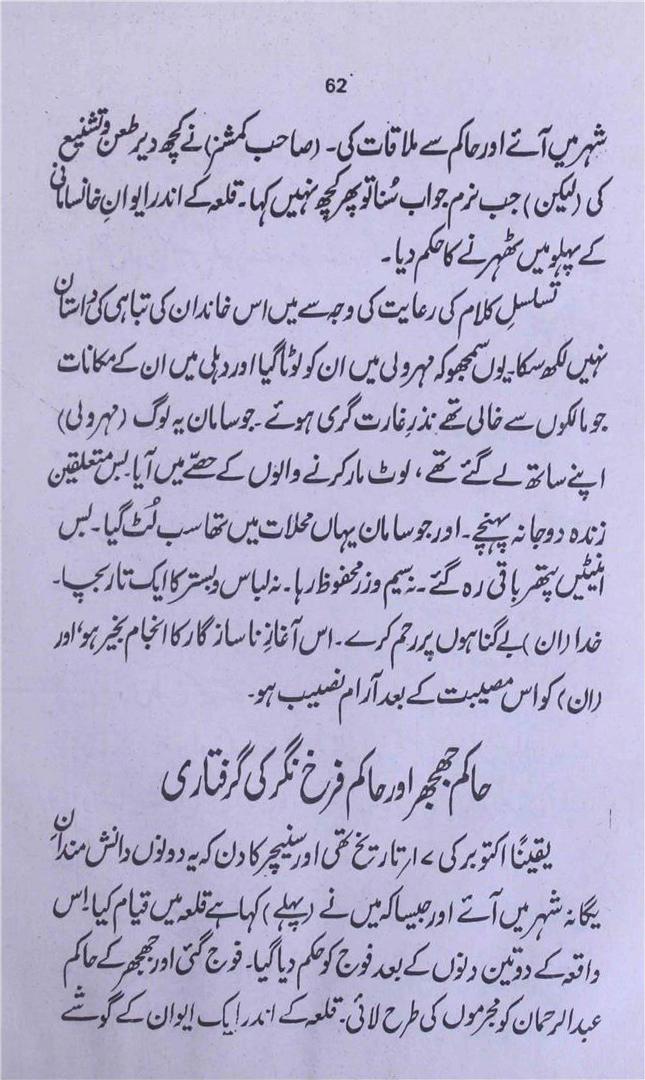 62
شہر میں آئے اور حاکم سے ملاقات کی۔ (صاحب کمشنر) نے کچھ دیر طعن و تشنیع
کی (لیکن) جب نرم جواب سُنا تو پھر کچھ نہیں کہا۔ قلعہ کے اندر ایوانِ خانسامانی
کے پہلو میں ٹھہرنے کا حکم دیا۔
تسلسلِ کلام کی رعایت کی وجہ سے میں اس خاندان کی تباہی کی داستان
نہیں لکھ سکا۔ یوں سمجھو کہ مہرولی میں ان کو لوٹا گیا اور دہلی میں ان کے مکانات
جو مالکوں سے خالی تھے نذرِ غارت گری ہوئے۔ جو سامان یہ لوگ (مہرولی)
اپنے ساتھ لے گئے تھے، لوٹ مار کرنے والوں کے حصّے میں آیا بس متعلقین
زندہ دوجانہ پہنچے۔ اور جو سامان یہاں محلات میں تھا سب لُٹ گیا۔ بس
اینٹیں پتھر باقی رہ گئے۔ نہ سیم و زر محفوظ رہا۔ نہ لباس و بستر کا ایک تار بچا۔
خدا (ان) بے گناہوں پر رحم کرے۔ اس آغازِ ناساز گار کا انجام بخیر ہو، اور
(ان) کو اس مصیبت کے بعد آرام نصیب ہو۔
حاکم جھجھر اور حاکم فرخ نگر کی گرفتاری
یقیناً اکتوبر کی ۱۷ تاریخ تھی اور سنیچر کا دن کہ یہ دونوں دانش مندانِ
یگانہ شہر میں آئے اور جیسا کہ میں نے (پہلے) کہا ہے قلعہ میں قیام کیا۔ اِس
واقعہ کے دو تین دنوں کے بعد فوج کو حکم دیا گیا۔ فوج گئی اور جھجھر کے حاکم
عبدالرحمان کو مجرموں کی طرح لائی۔ قلعہ کے اندر ایک ایوان کے گوشے